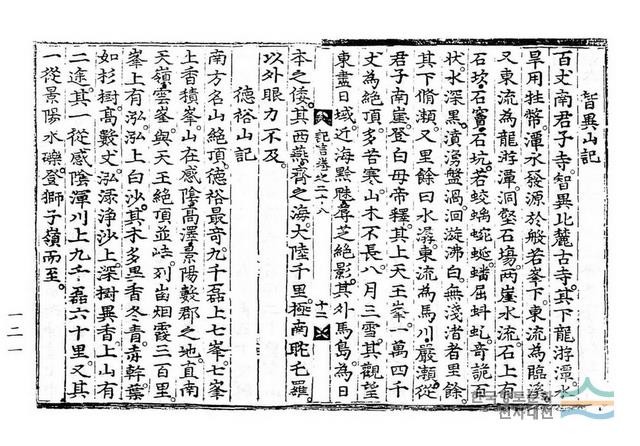 智異山記
百丈南君子寺智異北麓古寺其下龍游潭水
旱用牲幣潭水發源於般若峯下東流為臨溪
又東流為龍游潭洞壑石塲兩崖水流石上有
石坎石竇石坑若蛟螭蜿蜒蟠屈蚪虬奇詭百
狀水深黑濆湧盤渦回漩沸白無淺渚者里餘
其下脩瀨又里餘曰水潺東流為馬川嚴瀨從
君子南崖登白母帝釋其上天王峯一萬四千
丈為絶頂多苦寒山木不長八月三雪其觀望
東盡日域近海黔魅辱芝絶影其外馬島為日
記言卷之二十八
十二
本之倭其西燕齊之海大陸千里極南耽乇羅
以外眼力不及
德裕山記
南方名山絶頂德裕最奇九千磊上七峯七峯
上香積峯山在感陰高澤景陽數郡之地直南
天嶺雲峯與天王絶頂並峙列峀烟霞三百里
峯上有泓泓上白沙其木多里香冬青赤幹葉
如杉樹高數丈泓渌淨沙上深樹異香上山有
二逵其一從感陰渾川上九千磊六十里又其
一從景陽水礫登獅子嶺而至
一二一
한국향토문화
전자대전